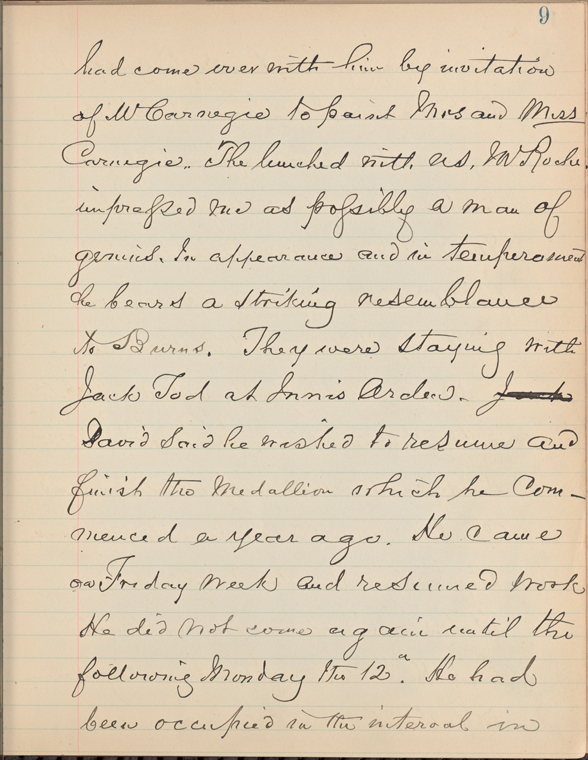 9
had come over with him by invitation
of Mr Carnegie to paint Mrs and Miss
Carnegie.. The lunched with us. Mr Roche.
impressed me as possibly a man of
genius. In appearance and in temperament
he bears a striking resemblance
to Burns. They were staying with
Jack Tod at Innis Arden.
David said he wished to resume and
finish the Medallion which he Com-
menced a year ago. He came
on Friday week and resumed work
He did not come again until the
following Monday the 12". He had
been occupied in the interval in